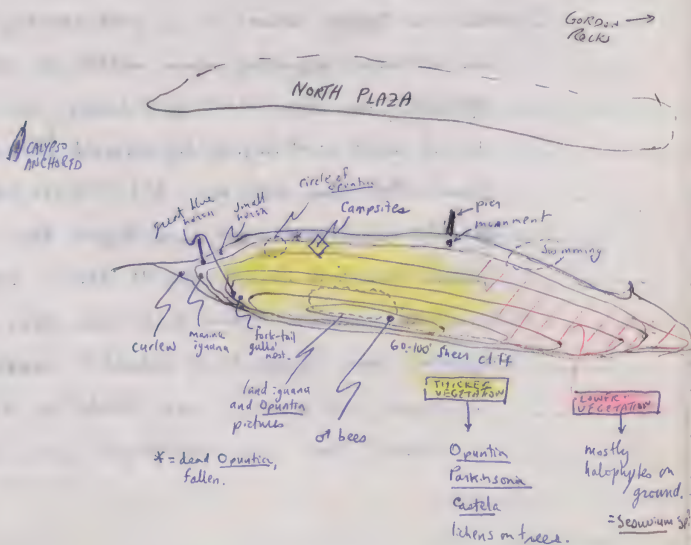 GORDON →
ROCKS
NORTH PLAZA
CALYPSO
ANCHORED
great blue
heron
small
heron
circle of
Opuntia
Campsites
pier
monument
swimming
curlew
marine
iguana
fork-tail
gulls'
nest.
60-100' sheer cliff
land iguana
and Opuntia
pictures
♂ bees
* = dead Opuntia,
fallen.
THICKER
VEGETATION
Opuntia
Parkinsonia
Castela
lichens on trees.
LOWER
VEGETATION
mostly
halophytes on
ground.
= Sesuvium sp.